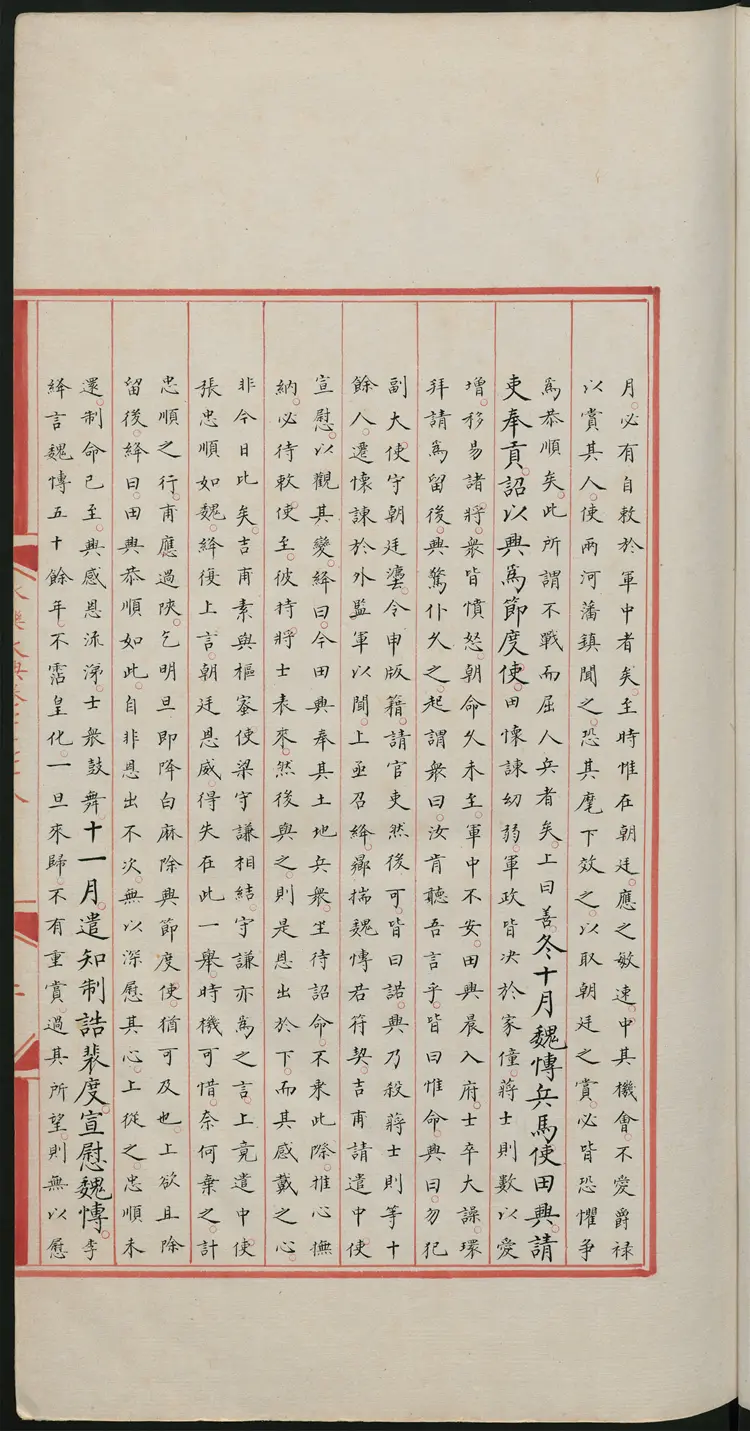 月。必有自敕於軍中者矣。至時惟在朝廷。應之敏速。中其機會。不愛爵禄
以賞其人。使兩河潘鎮聞之。恐其麾下效之。以取朝廷之賞。必皆恐懼争
爲恭順矣。此所謂不戰而屈人兵者矣。上曰善。冬十月魏愽兵馬使田興。請
吏奉貢。詔以興爲節度使。田懷諫幼弱。軍政皆决於家僮。蔣士則數以愛
增。移易諸將。衆皆憤怒。朝命久未至。軍中不安。田興晨入府。士卒大譟。環
拜請爲留後。興驚仆久之。起謂衆曰。汝肯聽吾言乎。皆曰惟命。興曰。勿犯
副大使。守朝廷灋。令申版籍。請官吏然後可。皆曰諾。興乃殺蔣士則等十
餘人。遷懷諫於外。監軍以聞。上亟召絳。鄉揣魏愽若符契。吉甫請遣中使
宣慰。以觀其變。絳曰。今田興奉其土地兵衆。坐待詔命。不乘此際。推心撫
納。必待敕使至。彼持將士表來。然後與之。則是恩出於下。而其感戴之心。
非今日比矣。吉甫素與樞密使梁守謙相結。守謙亦爲之言。上竟遣中使
張忠順如魏。絳復上言。朝廷恩威得失在此一舉。時機可惜。奈何棄之。計
忠順之行。甫應過陝。乞明旦即降白麻除興節度使。猶可及也。上欲且除
留後。絳曰。田興恭順如此。自非恩出不次。無以深慰其心。上從之。忠順未
還。制命已至。興感恩流涕。士衆鼓舞。十一月。遣知制誥裴度。宣慰魏愽。李
絳言魏愽五十餘年。不霑皇化。一旦來歸。不有重賞。過其所望。則無以慰